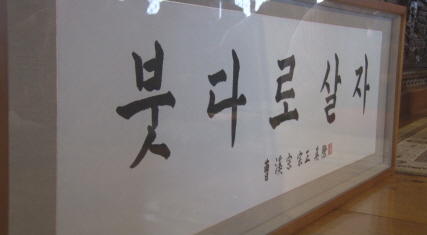 붓다로살자
曹溪宗 宗正 眞際